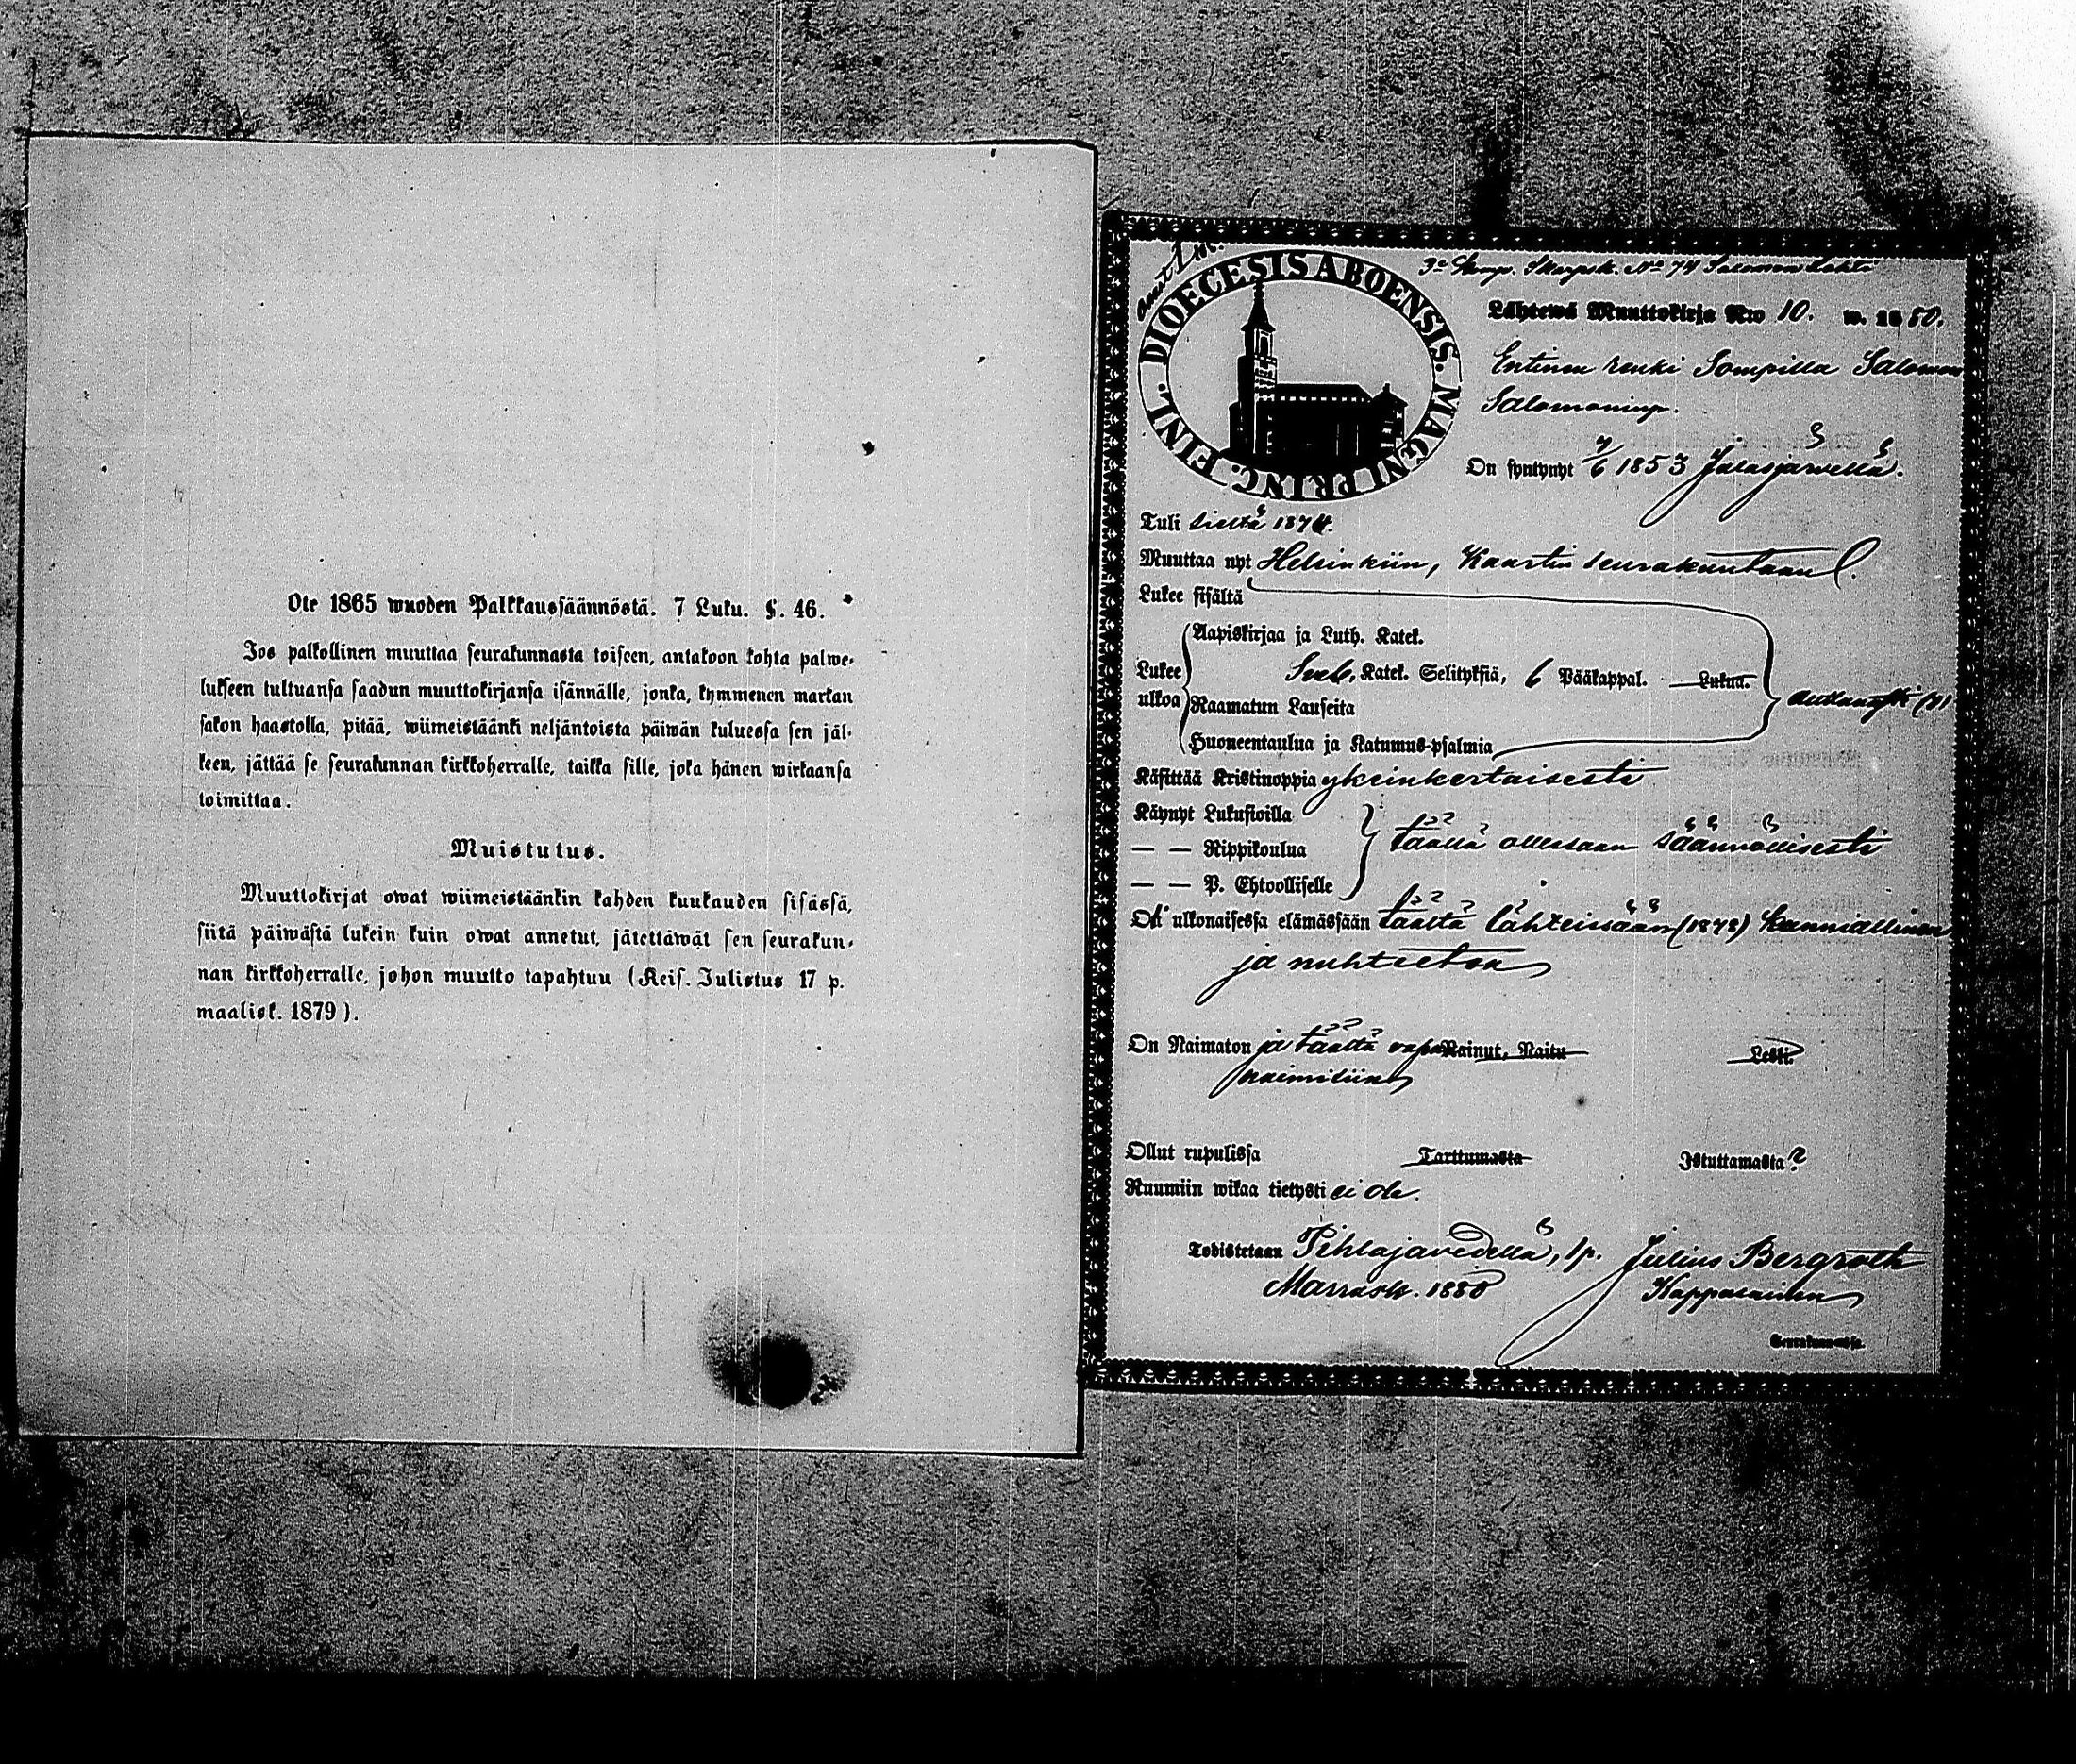 Ote 1865 wuoden Palkkaussäännöstä. 7 Luku. §. 46.
Jos palkollinen muuttaa seurakunnasta toiseen, antakoon kohta palwe-
lukseen tultuansa saadun muuttokirjansa isännälle, jonka, kymmenen markan
sakon haastolla, pitää, wiimeistäänki neljäntoista päiwän kuluessa sen jäl-
keen, jättää se seurakunnan kirkkoherralle, taikka sille, joka hänen wirkaansa
toimittaa.
Muistutus.
Muuttokirjat owat wiimeistäänkin kahden kuukauden sisässä,
siitä päiwästä lukein kuin owat annetut, jätettäwät sen seurakun-
nan kirkkoherralle, johon muutto tapahtuu (Keis. Julistus 17 p.
maalisk. 1879).
DIOECESIS ABOENSIS. MAGNI PRINC. FINL.
3e Komp. Skarpsk. No 74 Salomon Lahti
Lähtewä Muuttokirja N:o 10. w. 1880.
Entinen renki Sompilla Salomon
Salomoninp.
On syntynyt 7/6 1853 Jalasjärvellä.
Tuli sieltä 1874.
Muuttaa nyt Helsinkiin, Kaartin seurakuntaan
Lukee sisältä
Aapiskirjaa ja Luth. Katek.
Lukee Sveb. Katek. Selityksiä, 6 Pääkappal. Lukua.
ulkoa Raamatun Lauseita
Huoneentaulua ja Katumus-psalmia
Käsittää Kristinoppia yksinkertaisesti
Käynyt Lukusioilla
— — Rippikoulua täällä ollessaan säännöllisesti
— — P. Ehtoolliselle
Oli ulkonaisessa elämässään täältä lähteissään (1878) kunniallinen
ja nuhteeton
On Naimaton ja täältä vapa Nainut, Naitu Leski.
naimisiin
Ollut rupulissa Tarttumasta Istuttamasta?
Ruumiin wikaa tietysti ei ole.
Todistetaan Pihlajavedellä, 1 p. Julius Bergroth
Marrask. 1880 Kappalainen
Seurakunnassa.